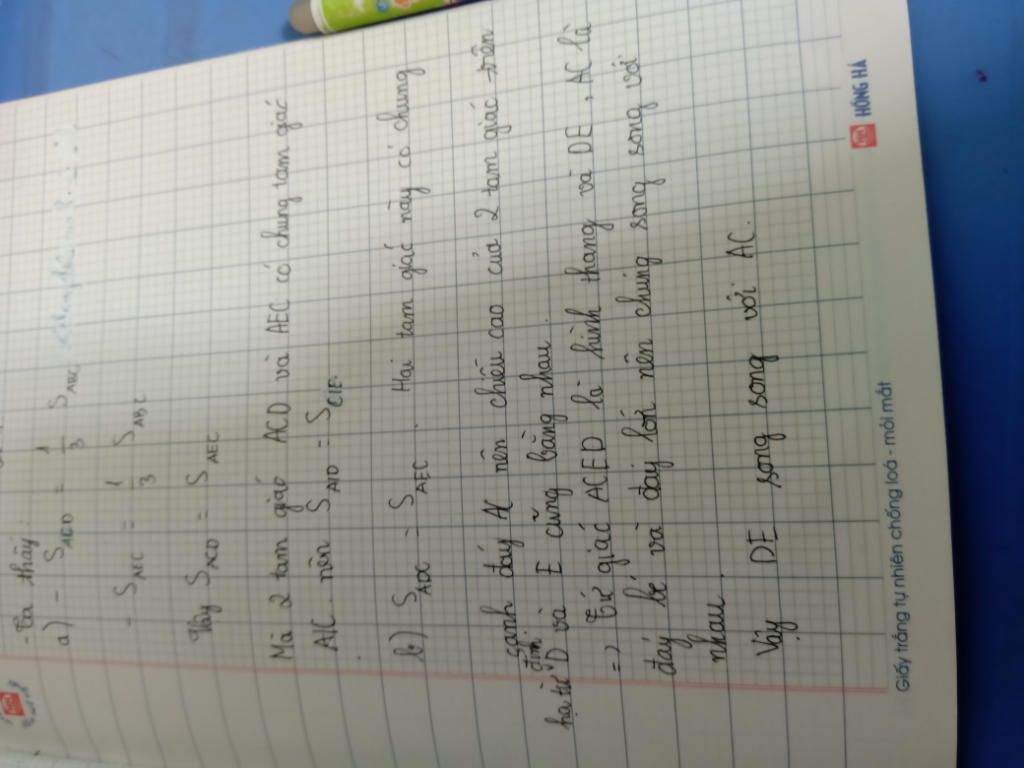 - Ta thấy:
a) - S ACD = 1/3 S ABC
- S AEC = 1/3 S ABC
Vậy S ACD = S AEC
Mà 2 tam giác ACD và AEC có chung tam giác
AIC nên S AID = S CIE.
b) S ADC = S AEC. Hai tam giác này có chung
cạnh đáy AC nên chiều cao của 2 tam giác trên
hạ từ đỉnh D và E cũng bằng nhau.
=> Tứ giác ACED là hình thang và DE, AC là
đáy bé và đáy lớn nên chúng song song với
nhau.
Vậy DE song song với AC.
HỒNG HÀ
Giấy trắng tự nhiên chống loá - mỏi mắt